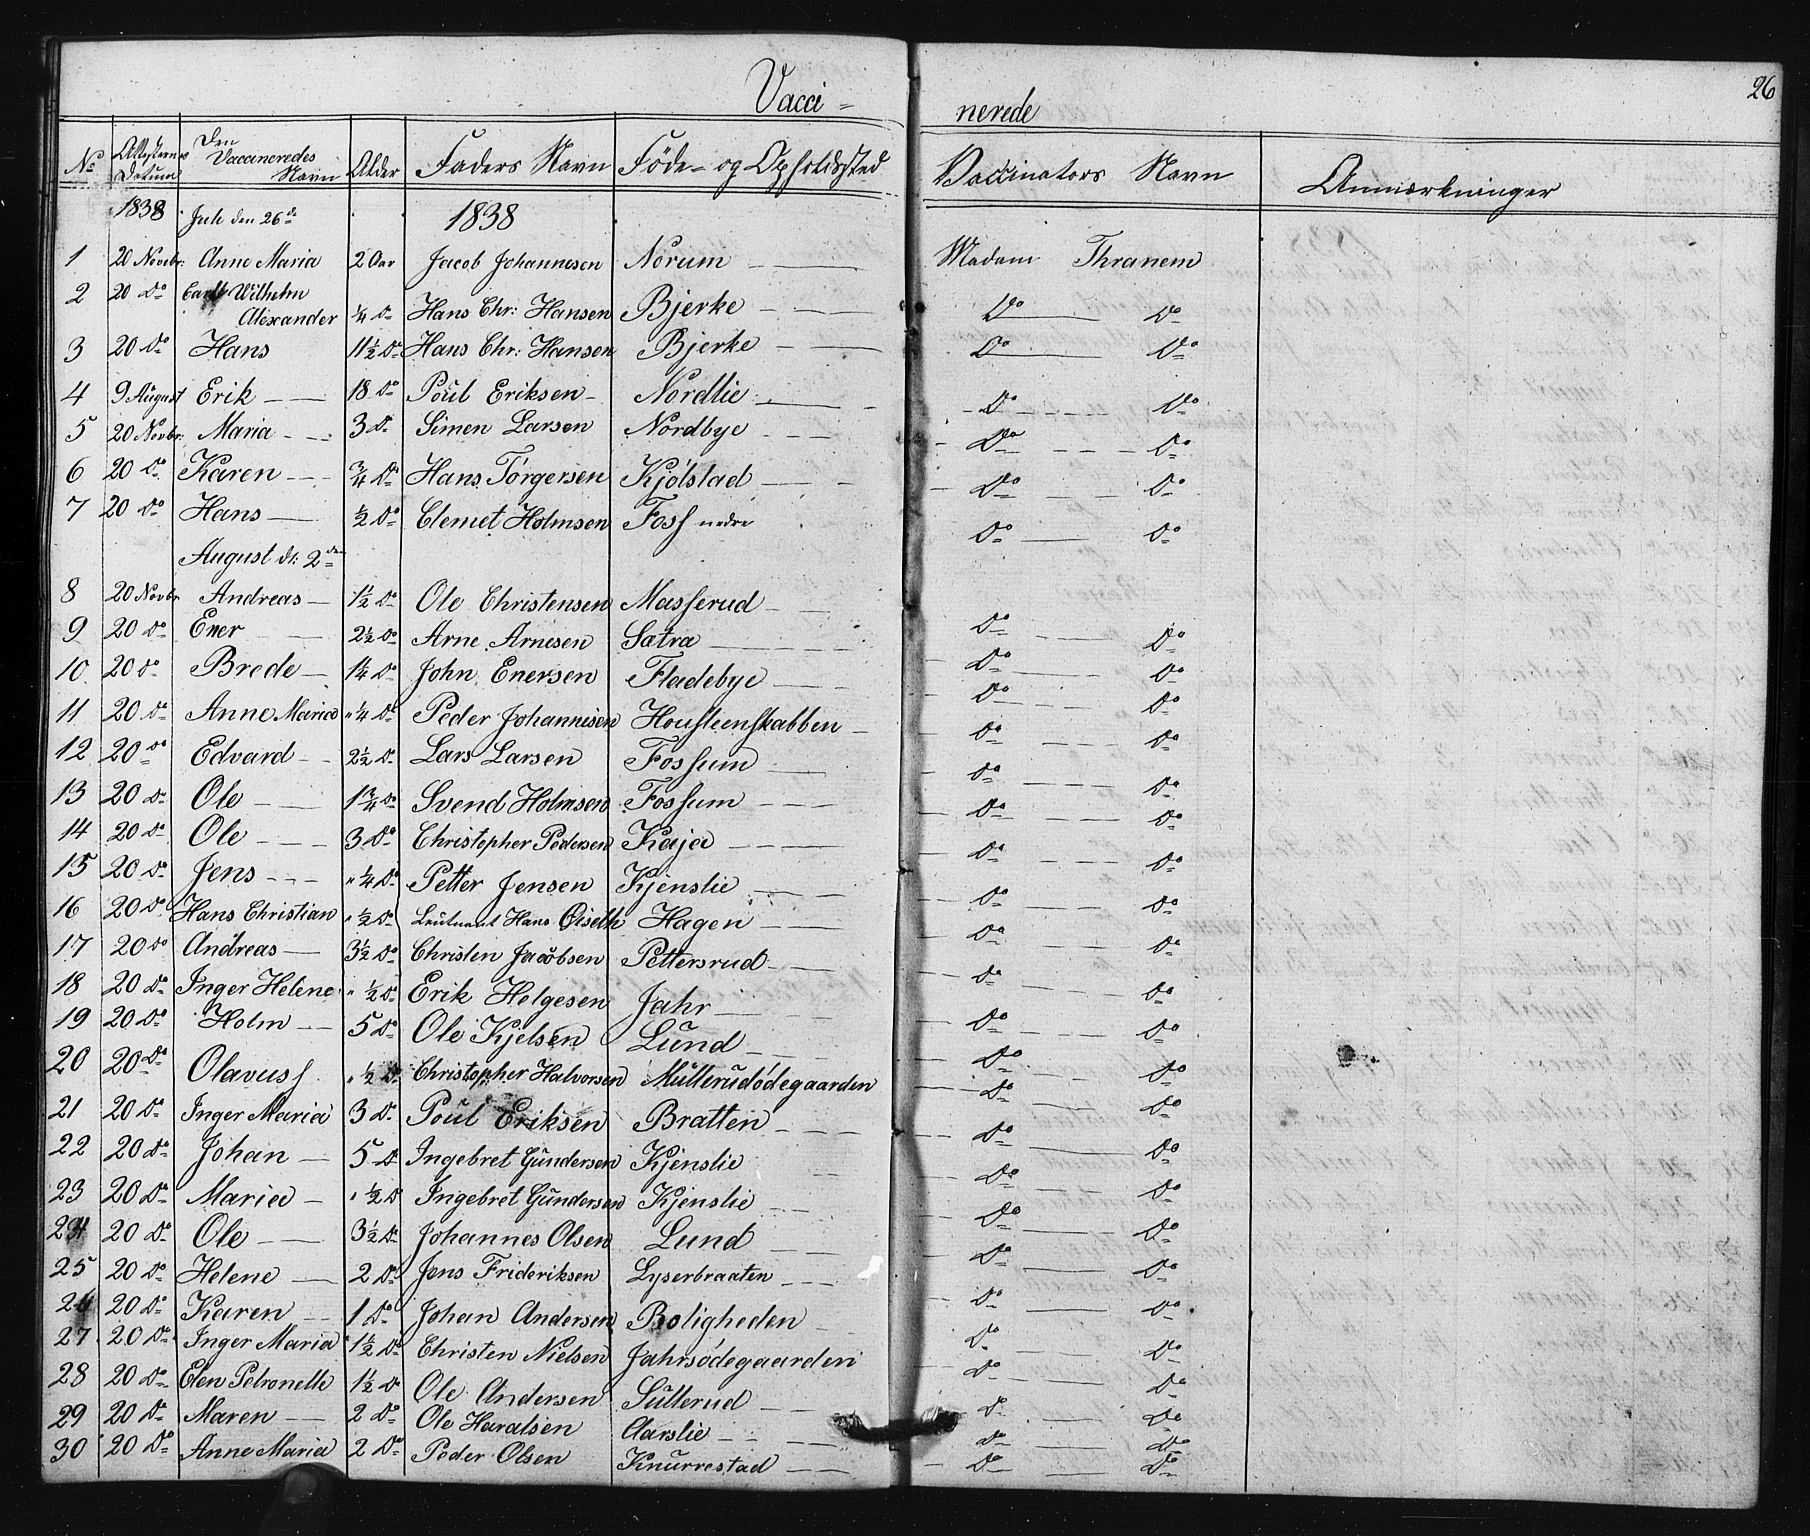 Vacci= nerede 26
No Attesternes Datum Den Vaccineredes Navn Alder Faders Navn Føde- og Opholdssted Vaccinators Navn Anmærkninger
1838 Juli den 26de 1838
1 20 Novebr: Anne Maria 2 Aar Jacob Johannesen Norum Madam Thranem
2 20 Do Carl Wilhelm
Alexander 1/4 Do Hans Chr: Hansen Bjerke Do Do
3 20 Do Hans 11 1/2 Do Hans Chr: Hansen Bjerke Do Do
4 9 August Erik 18 Do Poul Eriksen Nordlie Do Do
5 20 Novbr: Maria 3 Do Simen Larsen Nordbye Do Do
6 20 Do Karen 3/4 Do Hans Törgersen Kjölstad Do Do
7 20 Do Hans 1/2 Do Clemet Holmsen Foss nedre Do Do
August d: 2den
8 20 Novbr Andreas 1 1/2 Do Ole Christensen Masserud Do Do
9 20 Do Ener 2 1/2 Do Arne Arnesen Satra Do Do
10 20 Do Brede 1 1/4 Do John Enersen Fladebye Do Do
11 20 Do Anne Maria " 1/4 Do Peder Johannisen Housteenskabben Do Do
12 20 Do Edvard 2 1/2 Do Lars Larsen Fossum Do Do
13 20 Do Ole 1 3/4 Do Svend Holmsen Fossum Do Do
14 20 Do Ole 3 Do Christopher Pedersen Kaja Do Do
15 20 Do Jens " 1/4 Do Petter Jensen Kjenslie Do Do
16 20 Do Hans Christian " 1/2 Do Leutnant Hans Oiseth Hagen Do Do
17 20 Do Andreas 3 1/2 Do Christen Jacobsen Pettersrud Do Do
18 20 Do Inger Helene " 1/2 Do Erik Helgesen Jahr Do Do
19 20 Do Holm 5 Do Ole Kjelsen Lund Do Do
20 20 Do Olavuss " 1/2 Do Christopher Halvorsen Mullerudödegaarden Do Do
21 20 Do Inger Maria 3 Do Poul Eriksen Bratten Do Do
22 20 Do Johan 5 Do Ingebret Gundersen Kjenslie Do Do
23 20 Do Maria " 1/2 D Ingebret Gundersen Kjenslie Do Do
24 20 Do Ole 3 1/2 Do Johannes Olsen Lund Do Do
25 20 Do Helene 2 Do Jens Frideriksen Lyserbraaten Do Do
26 20 Do Karen 1 Do Johan Andersen Boligheden Do Do
27 20 Do Inger Maria 1 1/2 Do Christen Nielsen Jahrsödegaarden Do Do
28 20 Do Elen Petronelle 1 1/2 Do Ole Andersen Sullerud Do Do
29 20 Do Maren 2 Do Ole Haralsen Aarslie Do Do
30 20 Do Anne Maria 2 Do Peder Olsen Knurrestad Do Do